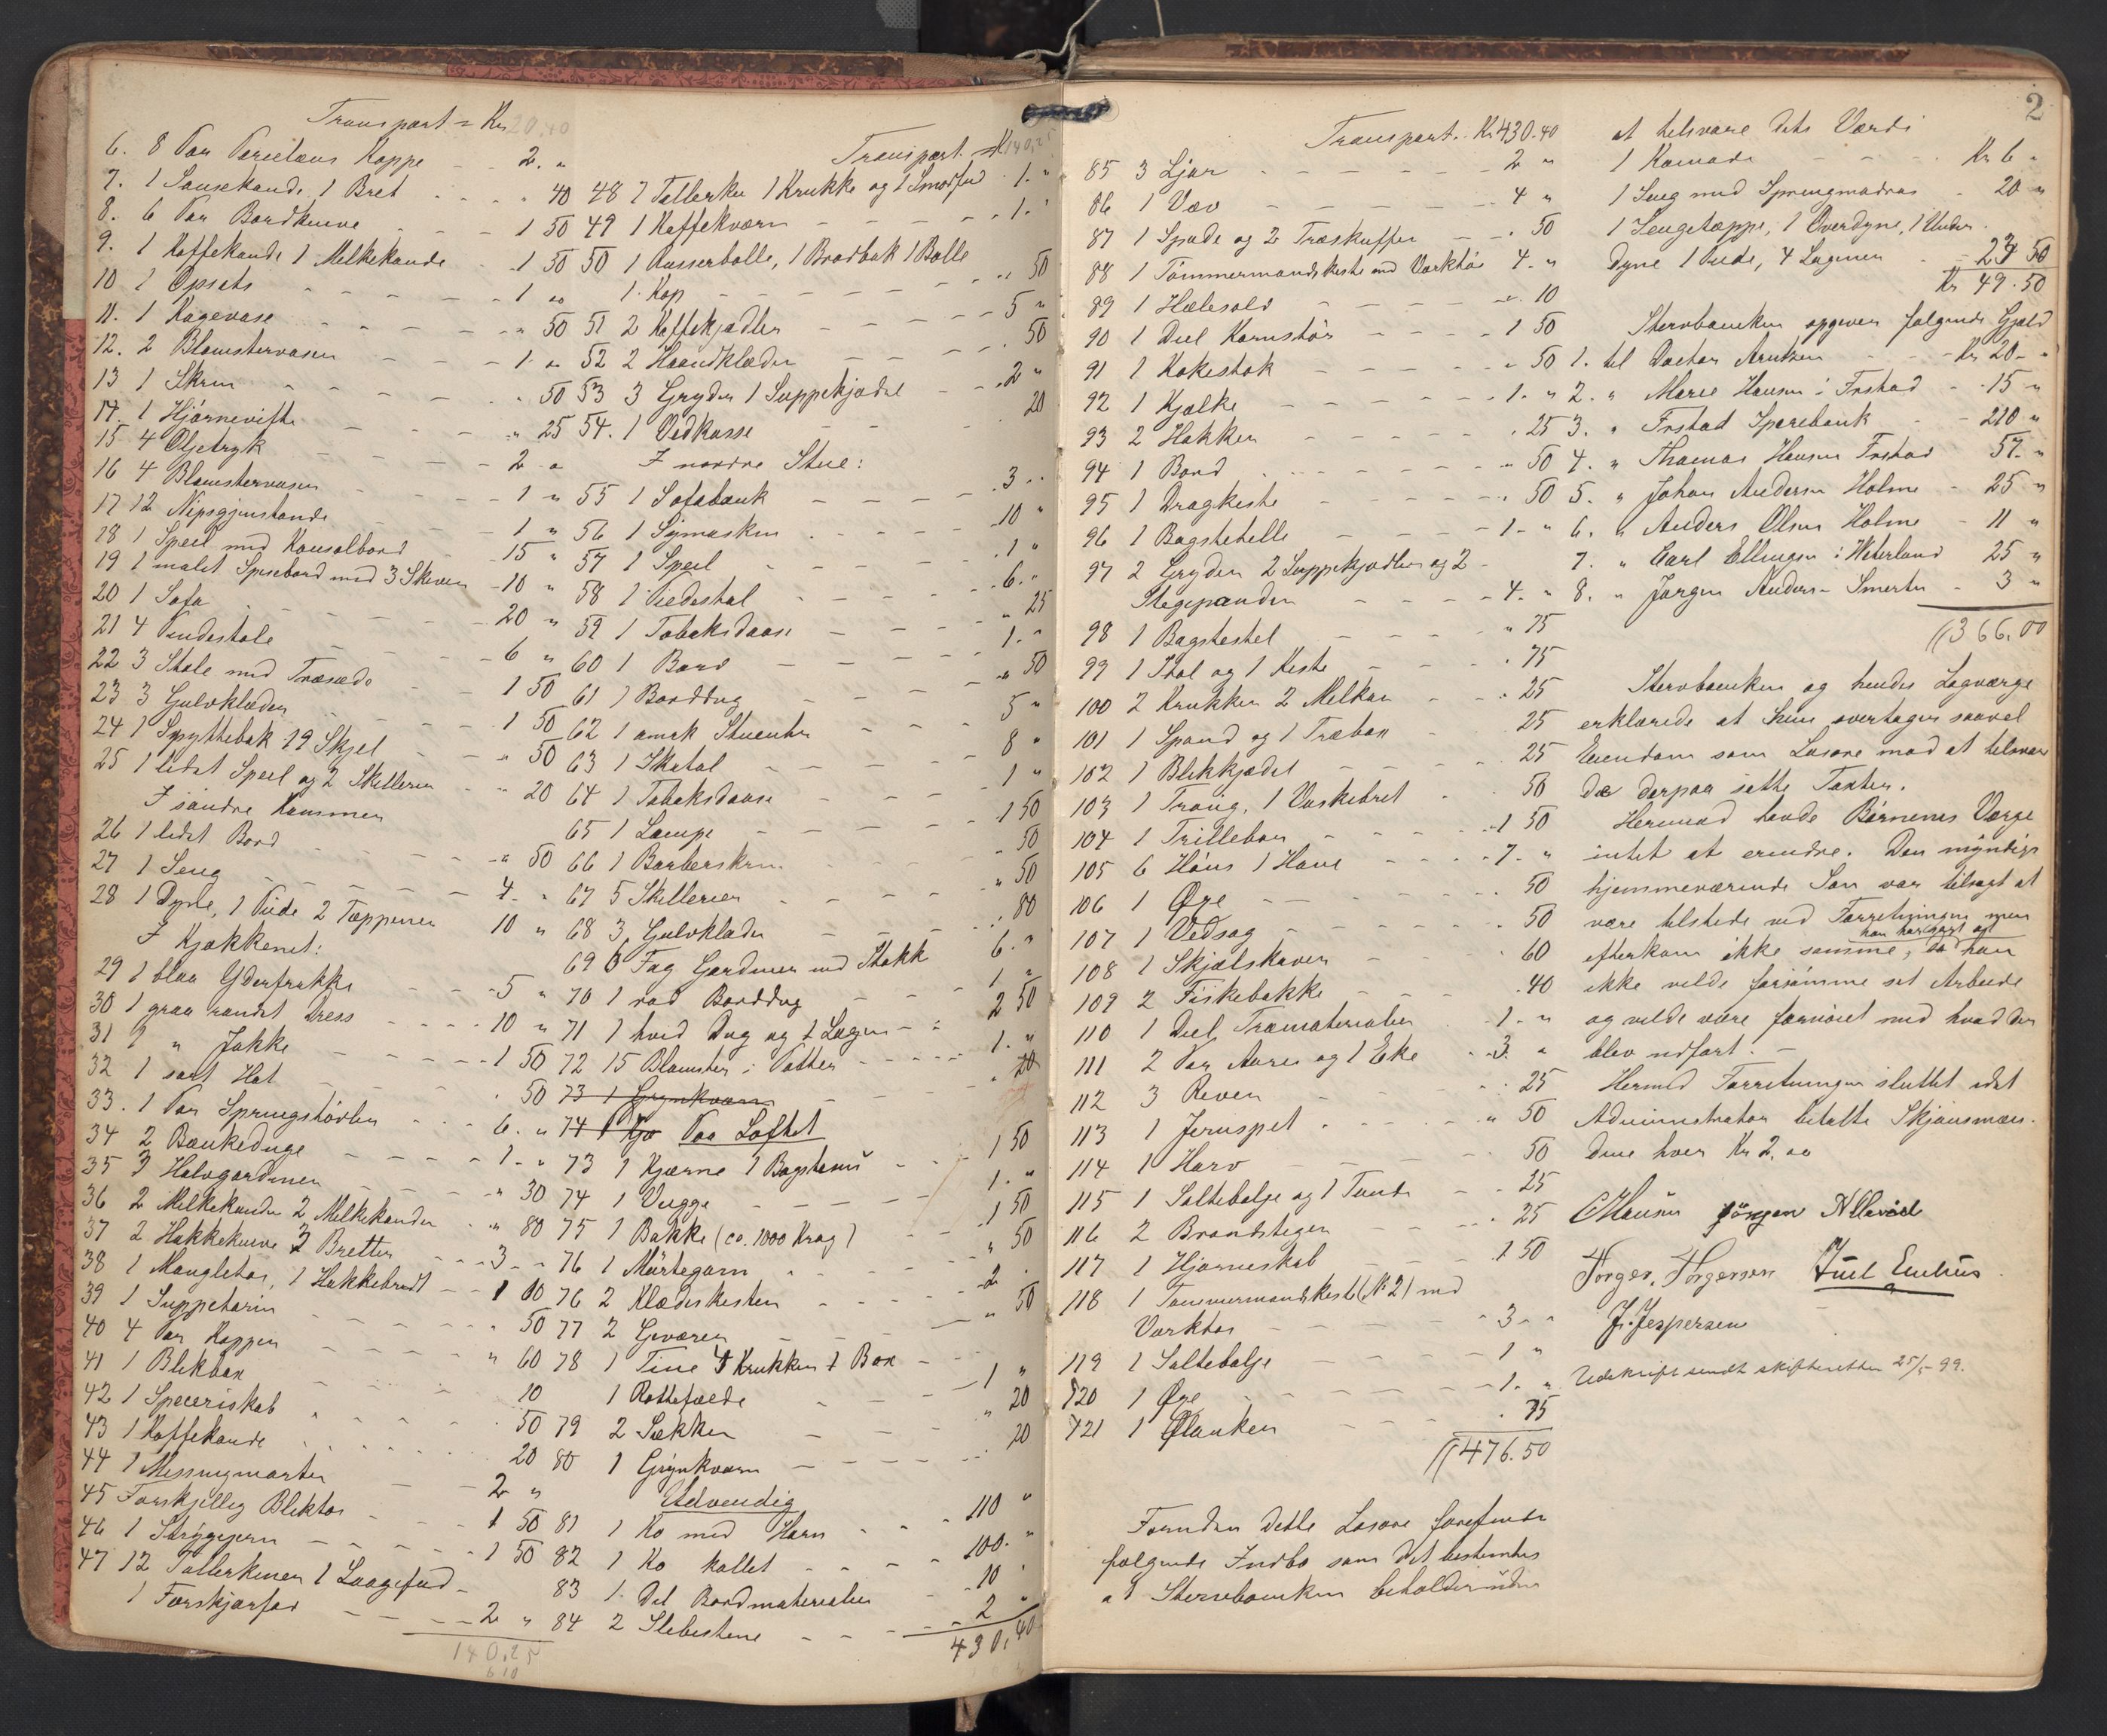 Transport = Kr 20.40
6. 8 Par Porcelæns Koppe - - 2. "
7. 1 Sausekande, 1 Bret - - " 40
8. 6 Par Bordknive - - 1 50
9. 1 Kaffekande 1 Melkekande - 1 50
10 1 Opsats - - - 1 "
11. 1 Kagevase - - - " 50
12. 2 Blomstervaser - - - 1 "
13 1 Skrin - - - " 50
14. 1 Hjørnevifte - - - " 25
15 4 Oljetryk - - - 2 "
16 4 Blomstervaser - - - 1 "
17 12 Nipsgjenstande - - 1 "
18 1 Speil med Konsolbord - 15 "
19 1 malet Spisebord med 3 Skiver - 10 "
20 1 Sofa - - - 20 "
21 4 Pindestole - - - 6 "
22 3 Stole med Træsæde - - 1 50
23 3 Gulvklæder - - - 1 50
24 1 Spyttebak 19 Skjel - - " 50
25 1 lidet Speil og 2 Skillerier - " 20
I søndre Kammer
26 1 lidet Bord - - - " 50
27 1 Seng - - - 4. "
28 1 Dyne, 1 Pude 2 Tæppener 10 "
I Kjøkkenet:
29 1 blaa Yderfrakke - - - 5 "
30 1 graa randet Dress - - - 10 "
31 1 " Jakke - - - 1 50
32 1 sort Hat - - - . 50
33. 1 Par Springstøvler - - - 6. "
34 2 Bænkeduge - - - 1. "
35 3 Halvgardiner - - - " 30
36 2 Melkekander 2 Melkekander - " 80
37 2 Hakkeknive 3 Bretter - - 3 "
38 1 Mangletøi, 1 Hakkebrædt - - 1 00
39 1 Suppeterin - - - . 50
40 4 Par Kopper - - - " 60
41 1 Blikbox - - - 10
42 1 Speceriskab - - - . 50
43 1 Kaffekande - - - 20
44 1 Messingmorter - - 2 "
45 Forskjellig Bliktøi - - - 1 50
46 1 Strygejern - - - 1 50
47 12 Tallerkener 1 Laagefad -
1 Forskjærfad - - - 2 "
140,25
610
Transport Kr 140,25
48 7 Tallerker 1 Krukke og 1 Smørfad - 1. "
49 1 Kaffekværn - - - 1. "
50 1 Russerbolle, 1 Brødbak 1 Bolle
1. Kop - - - " 50
51 2 Kaffekjedler - - - 5 "
52 2 Haandklæder - - . 50
53 3 Gryder 1 Suppekjedel - - 2 "
54. 1 Vedkasse - - - 20
I nordre Stue:
55 1 Sofabænk - - - 3 "
56 1 Symaskin - - - 10 "
57 1 Speil - - - 1 "
58 1 Piedestal - - - 6. "
59 1 Tobaksdaase - - - " 25
60 1 Bord - - - 1. "
61 1 Borddug - - - " 50
62 1 amrk Stueuhr - 5 "
63 1 Skatol - - - 8 "
64 1 Tobaksdaase - - - 1 "
65 1 Lampe - - - 1 50
66 1 Barberskrin - - - 50
67 5 Skillerier - - - " 50
68 3, Gulvklæder - - - . 80
69 6 Fag Gardiner med Stokk 6. "
70 1 rød Borddug - - - 1 "
71 1 hvid Dug og 1 Lagen - - 2 50
72 15 Blomster i Potter - - - 1. "
73 1 Grynkværn - - - " 20
74 1 Kjø Paa Loftet
73 1 Kjærne 1 Bagstemu - - 1 50
74 1 Vugge - - - 1. "
75 1 Bakke (ca. 1000 Krog) - - 1 50
76 1 Mörtegarn - - - " 50
76 2 Klædeskister - - - 2 .
77 2 Geværer - - - " 50
78 1 Tine 4 Krukker 1 Box -
1 Rottefælde - - 1 "
79 2 Sækker - - - " 20
80 1 Grynkværn - - - . 20
Udvendig
81 1 Ko med Horn - - - 110 "
82 1 Ko kollet - - - 100. "
83 1. Del Bordmaterialier - - 10 "
84 2 Slibestene - - - 2 "
430,40
2
Transport. Kr 430.40
85 3 Ljar - - - 2 "
86 1 Væv - - - 4 "
87 1 Spade og 2 Træskuffer - - . 50
88 1 Tømmermandskiste med Værktøi 4. "
89 1 Hælesold - - - . 10
90 1 Deel Kornstør - - - 1 50
91 1 Kokestok - - - " 50
92 1 Kjælke - - - 1. "
93 2 Hakker - - - . 25
94 1 Bord - - - " 50
95 1 Dragkiste - - - . 50
96 1 Bagstehelle - - - 1. "
97 2 Gryder 2 Suppekjedler og 2 -
Stegepander - - - 4. "
98 1 Bagstestel - - - " 75
99 1 Stol og 1 Kiste - - - . 75
100 2 Krukker 2 Melkar - - . 25
101 1 Spand og 1 Træbox - 25
102 1 Blikkjedel - - - . 25
103 1 Traug, 1 Vaskebret - . 50
104 1 Trillebør - - - 1 50
105 6 Høns 1 Hane - - - 7. "
106 1 Øxe - - - . 50
107 1 Vedsag - - - . 50
108 1 Skjælskaver - - . 60
109 2 Fiskebakke - - - . 40
110 1 Deel Træmaterialier - 1. "
111 2 Par Aarer og 1 Eke - 3. "
112 3 River - - - . 25
113 1 Jernspet - - - " 50
114 1 Harv - - - 50
115 1 Saltebalje og 1 Tønde - - 25
116 2 Brandstiger - - - . 25
117 1 Hjørneskab - - - 1 50
118 1 Tømmermandskiste (No 2) med
Værktøi - - - 3 "
119 1 Saltebalje - - - 1 "
120 1 Øxe - - - 1. "
121 1 Planker - - - . 75
476.50
Foruden dette Løsøre forefindes
følgende Indbo som det bestemtes
at Stervboenken beholder uden
at tilsvare dets Værdi
1 Komode - - - Kr 6 "
1 Seng med Springmadras - 20 "
1 Sengetæppe, 1 Overdyne, 1 Under
dyne 1 Pude, 4 Lagener - 23 50
Kr 49.50
Stervboenken opgiver følgende Gjæld
1. til Doctor Arntzen - - Kr 20. "
2. " Marie Hansen i Frstad - 15 "
3. " Frstad Sparebank - 210 "
4. " Thomas Hansen Frstad 57. "
5. " Johan Andersen Holme - 25 "
6. " Anders Olsen Holme - 11 "
7. " Carl Ellingsen i Weterland 25 "
8. " Jørgen Anders- Smerter - 3 "
366.00
Stervboenken og hendes Lagværge
erklærede at hun overtager saavel
Eiendom som Løsøre mod at tilsvare
de derpaa satte Taxter.
Hermed havde Børnenes Værge
intet at erindre. Den myndige
hjemmeværende Søn var tilsagt at
være tilstede ved Forretningen men
han har sagt at
efterkom ikke samme, da han
ikke vilde forsømme sit Arbeide
og vilde være fornøiet med hvad der
blev udført. -
Hermed Forretningen sluttet idet
Administrator betalte Skjønsmæn-
dene hver Kr 2,00
CHansen Jörgen Allevik
Torger Torgersen Juel Emilius
J. Jespersen
Udskrift sendt skifteretten 25/5-99.